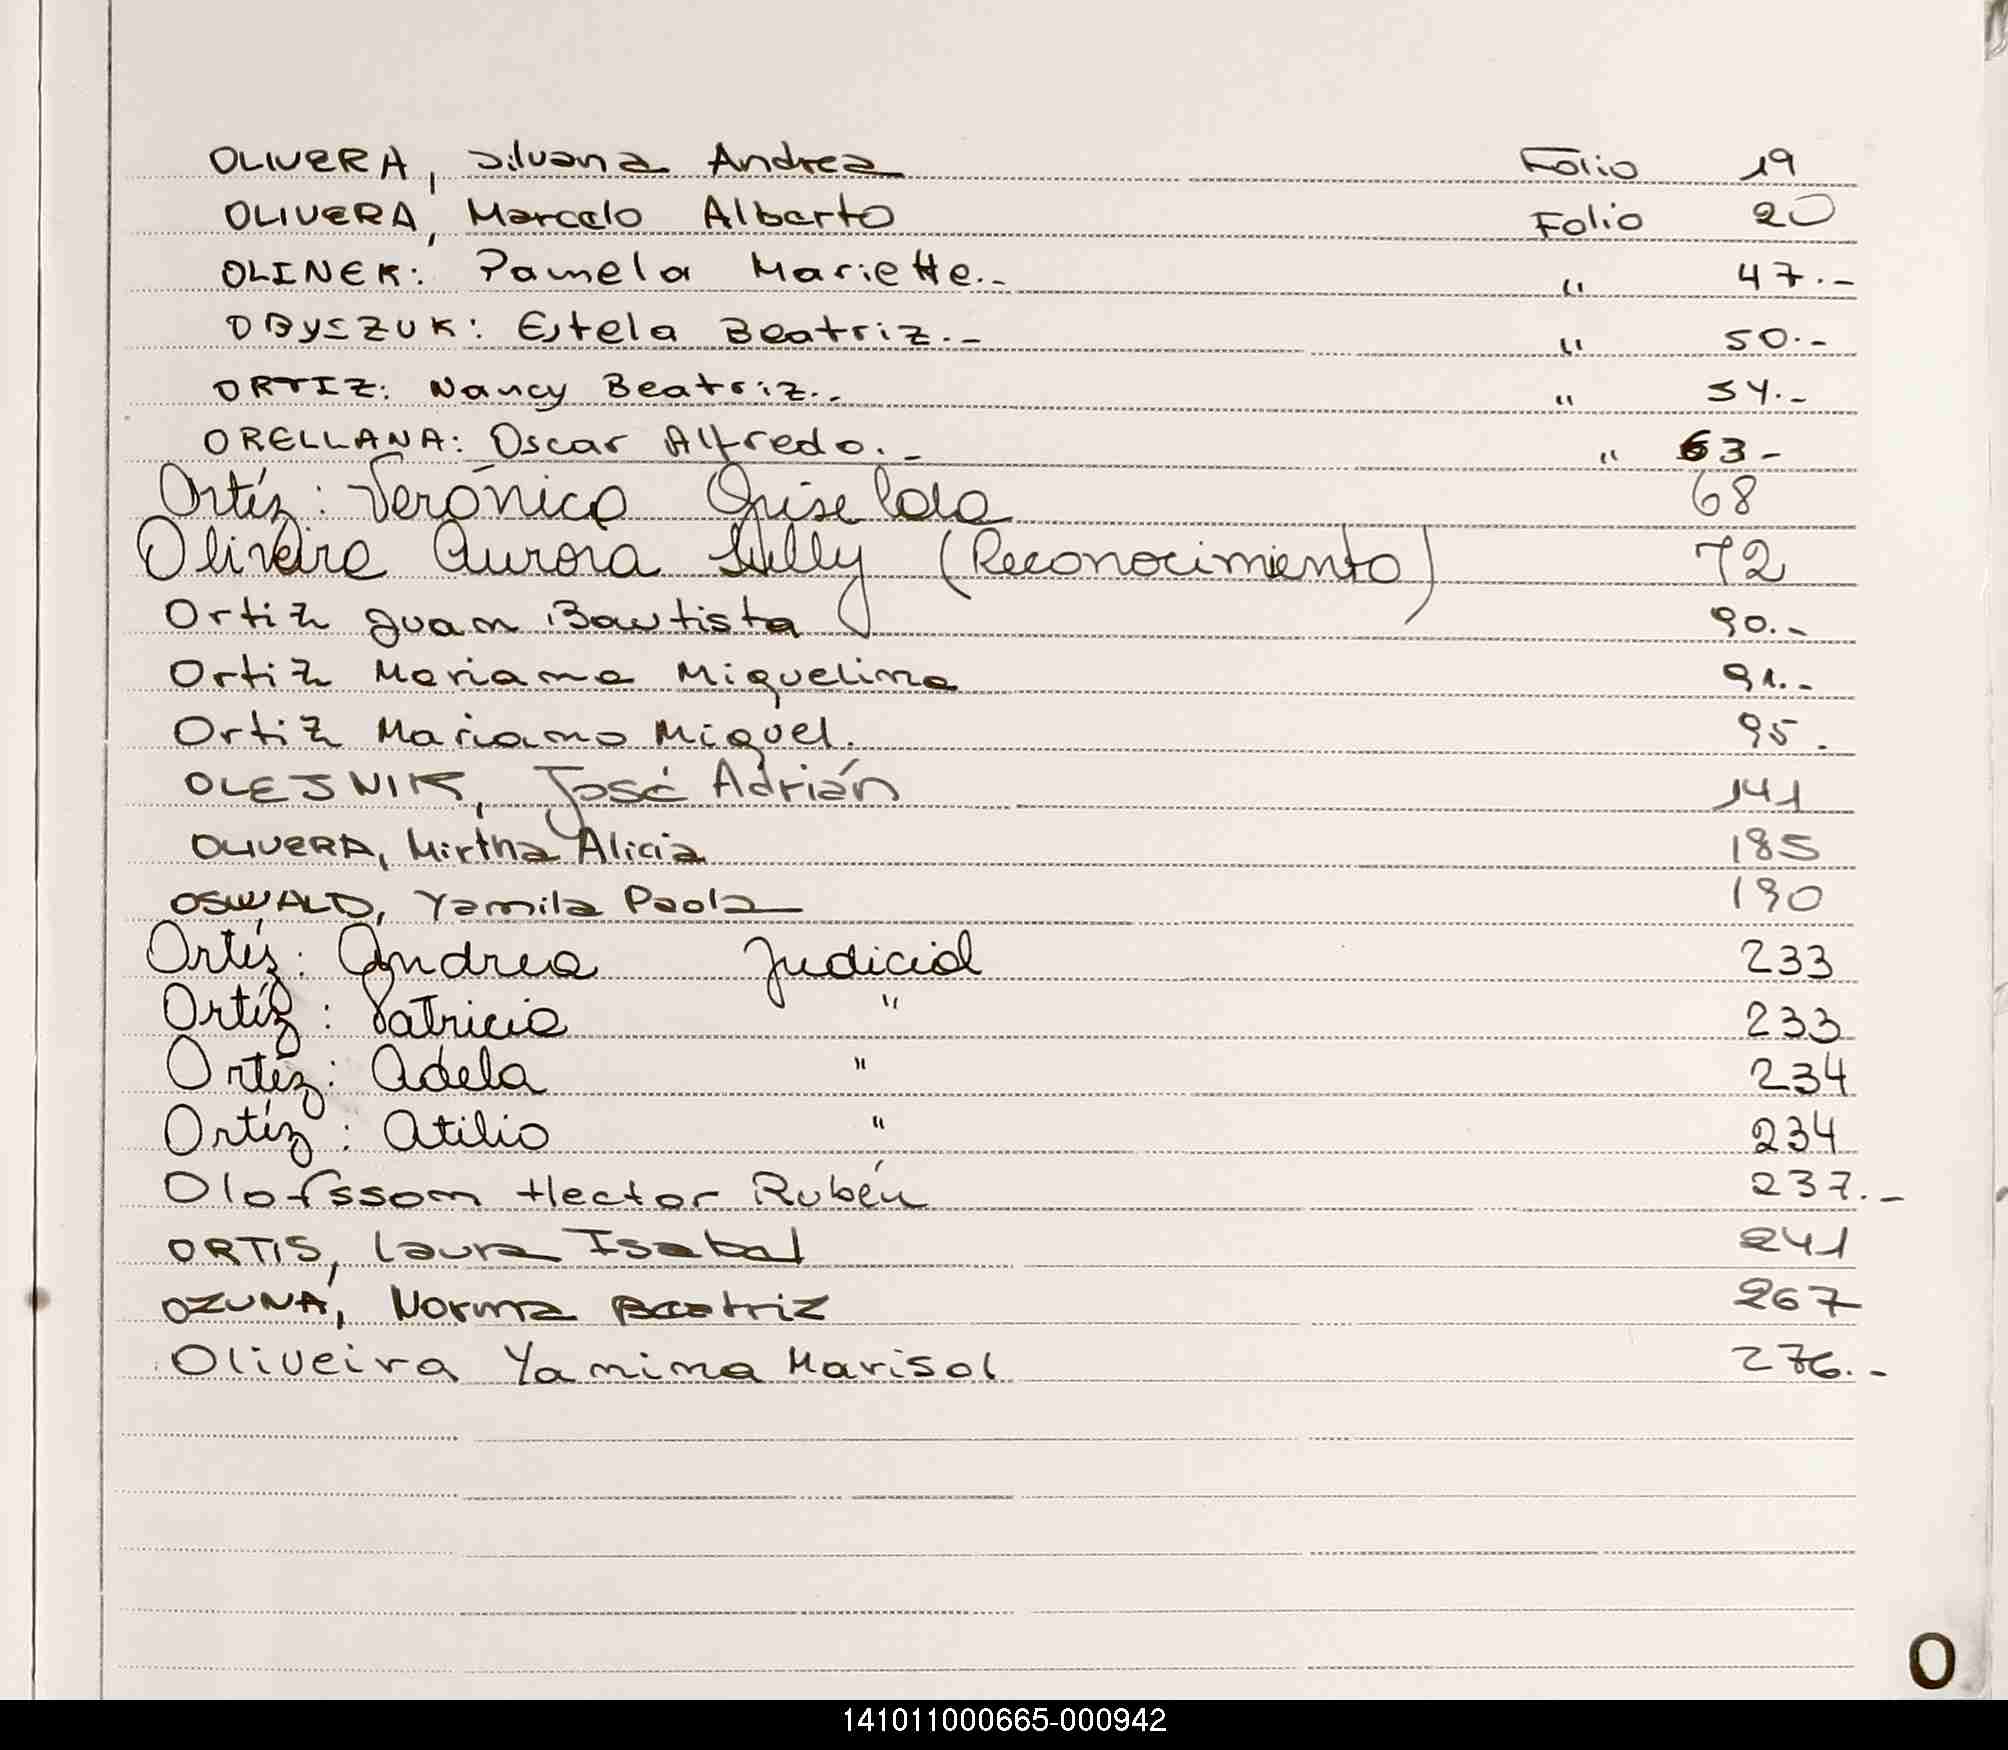 OLIVERA, Silvana Andrea Folio 19
OLIVERA, Marcelo Alberto Folio 20
OLINEK: Pamela Mariette.- " 47.-
OBYSZUK: Estela Beatriz.- " 50.-
ORTIZ: Nancy Beatriz.- " 54.-
ORELLANA: Oscar Alfredo.- " 63-
Ortíz: Verónica Griselda 68
Oliveira Aurora (Reconocimiento) 72
Ortiz Juan Bautista 90.-
Ortiz Mariana Miguelina 91.-
Ortiz Mariano Miguel. 95.
OLEJNIK, José Adrián 141
OLIVERA, Mirtha Alicia 185
OSWALD, Yamila Paola 190
Ortíz: Andrea Judicial 233
Ortíz: Patricia " 233
Ortíz: Adela " 234
Ortíz: Atilio " 234
Olofssom Hector Rubén 237.-
ORTIS, Laura Isabel 241
OZUNA, Norma Beatriz 267
Oliveira Yanina Marisol 276.-
O
141011000665-000942